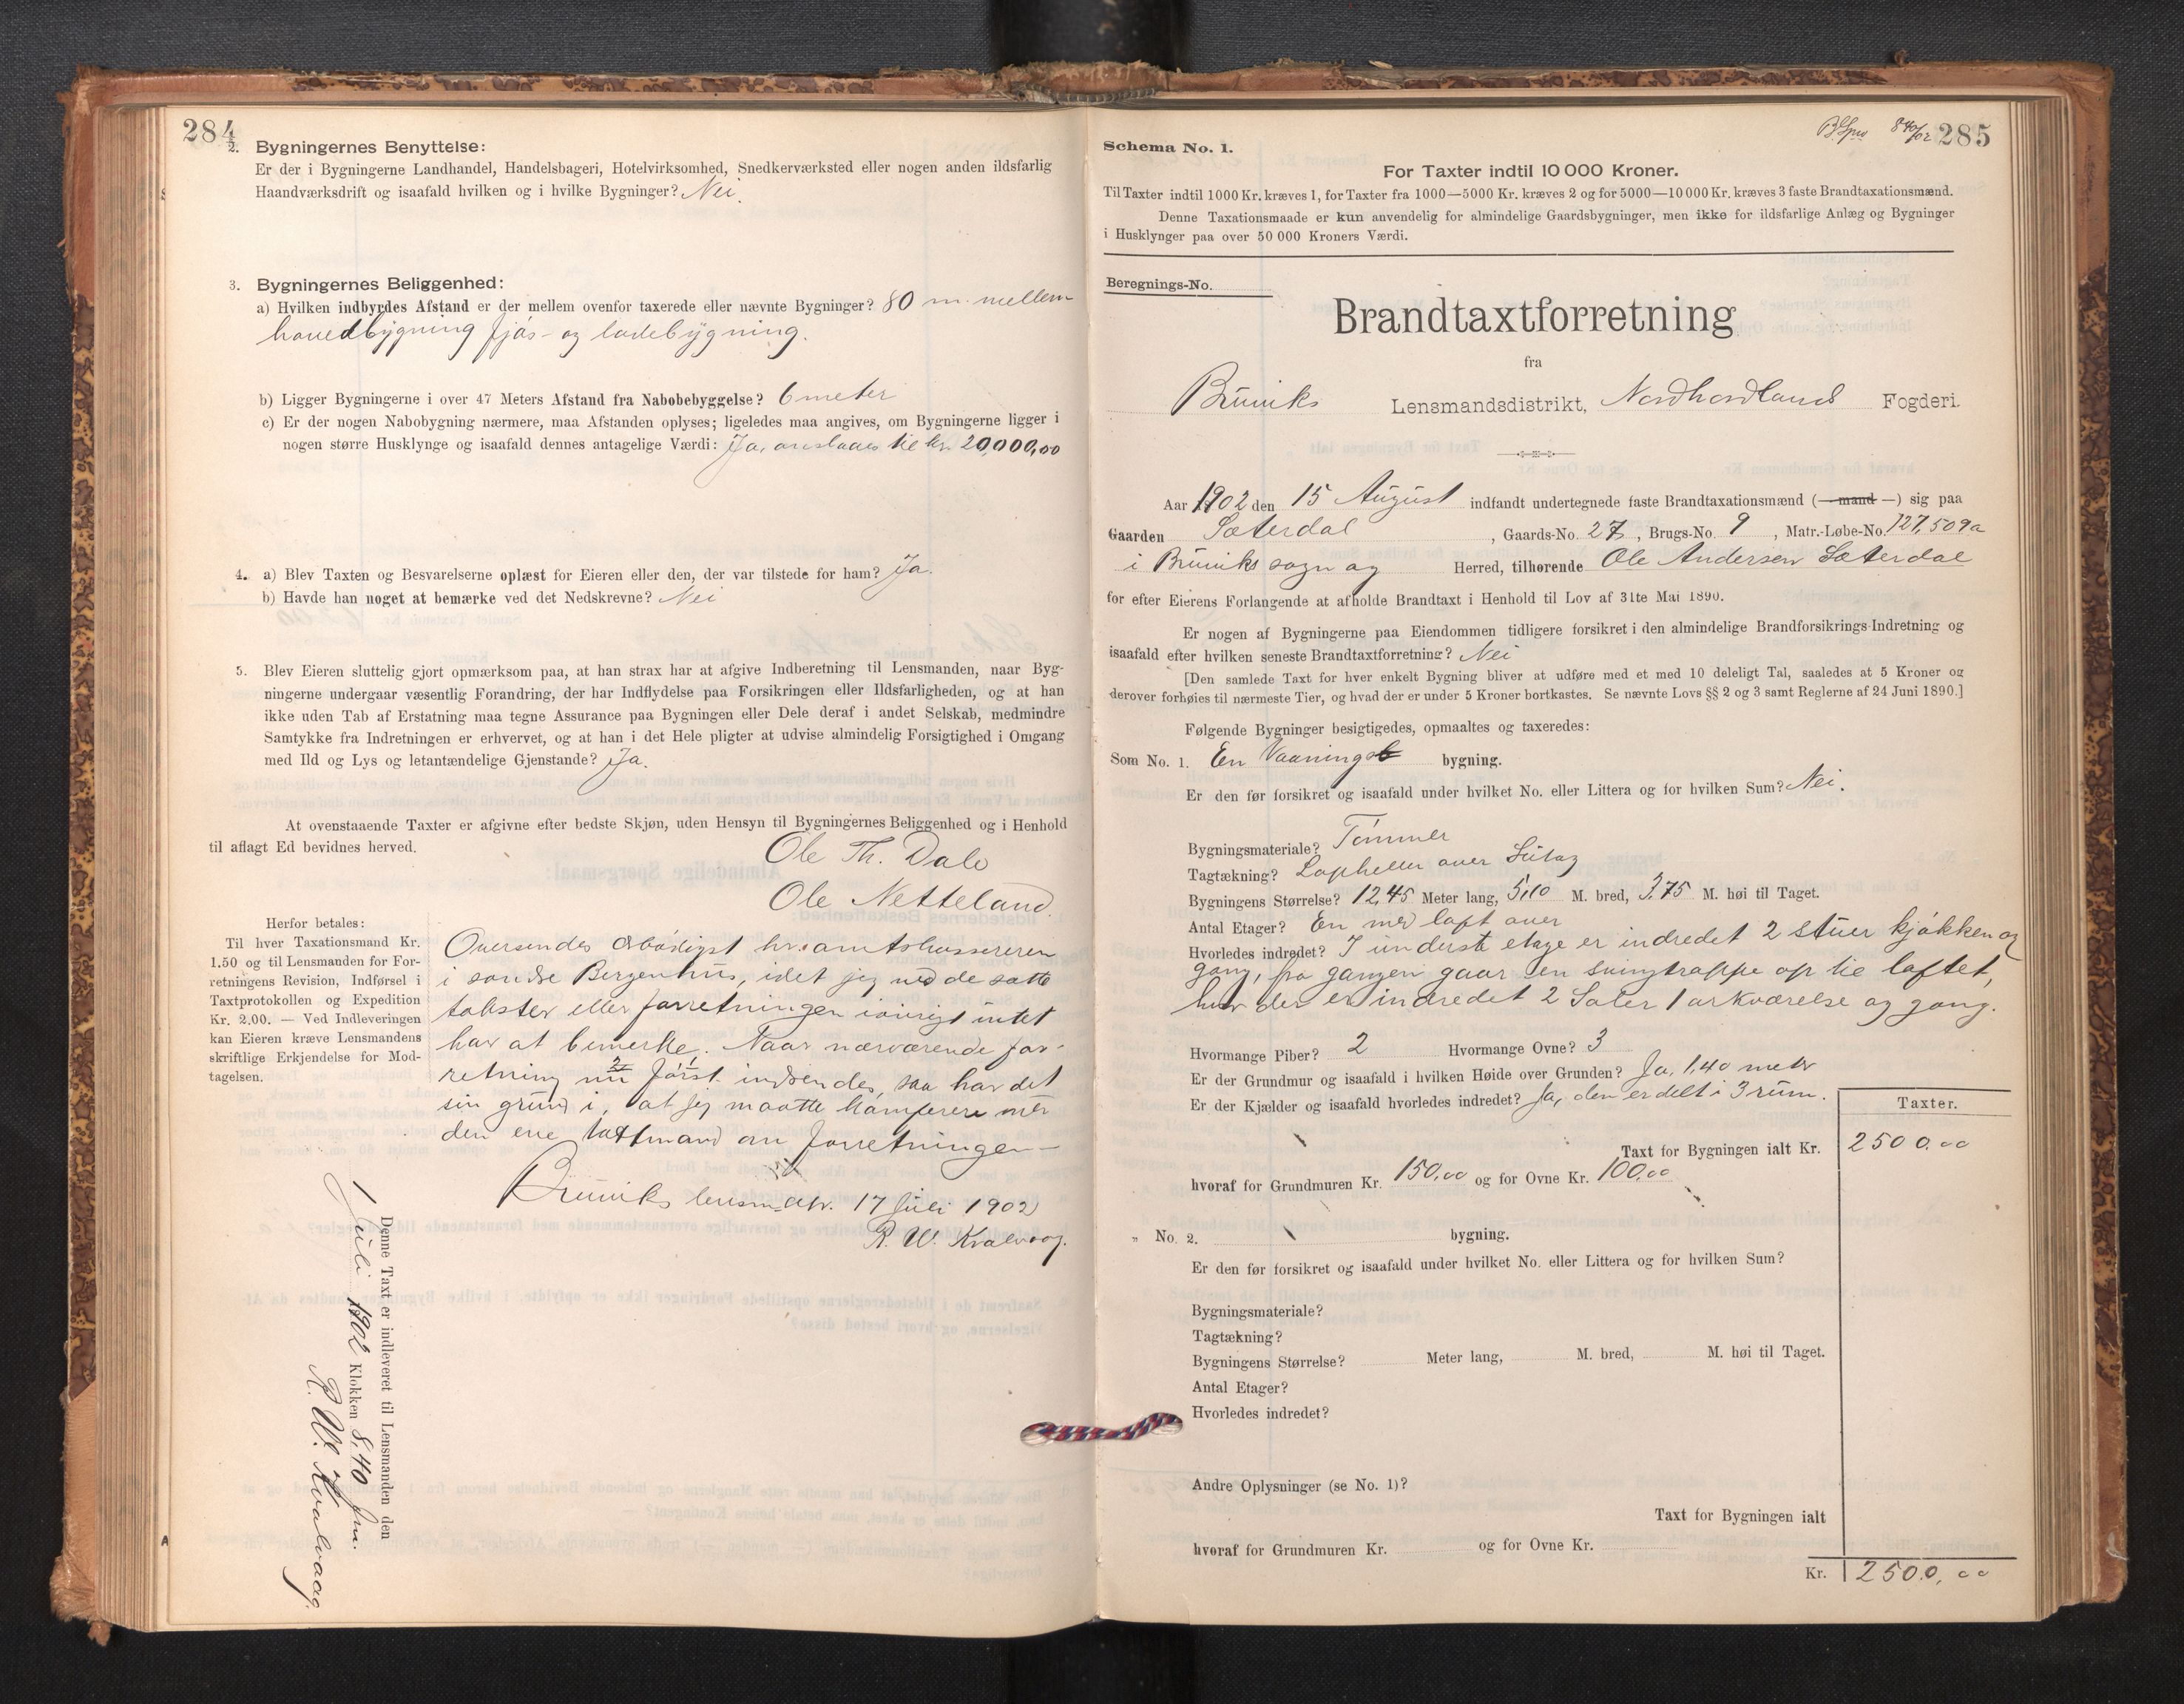 284
2. Bygningernes Benyttelse:
Er der i Bygningerne Landhandel, Handelsbageri, Hotelvirksomhed, Snedkerværksted eller nogen anden ildsfarlig
Haandværksdrift og isaafald hvilken og i hvilke Bygninger? Nei.
3. Bygningernes Beliggenhed:
a) Hvilken indbyrdes Afstand er der mellem ovenfor taxerede eller nævnte Bygninger? 80 m. mellem
hovedbygning fjøs- og ladebygning.
b) Ligger Bygningerne i over 47 Meters Afstand fra Nabobebyggelse? 6 meter
c) Er der nogen Nabobygning nærmere, maa Afstanden oplyses; ligeledes maa angives, om Bygningerne ligger i
nogen større Husklynge og isaafald dennes antagelige Værdi: Ja, anslaaes til kr. 20,000,00
4. a) Blev Taxten og Besvarelserne oplæst for Eieren eller den, der var tilstede for ham? Ja.
b) Havde han noget at bemærke ved det Nedskrevne? Nei
5. Blev Eieren sluttelig gjort opmærksom paa, at han strax har at afgive Indberetning til Lensmanden, naar Byg-
ningerne undergaar væsentlig Forandring, der har Indflydelse paa Forsikringen eller Ildsfarligheden, og at han
ikke uden Tab af Erstatning maa tegne Assurance paa Bygningen eller Dele deraf i andet Selskab, medmindre
Samtykke fra Indretningen er erhvervet, og at han i det Hele pligter at udvise almindelig Forsigtighed i Omgang
med Ild og Lys og letantændelige Gjenstande? Ja.
At ovenstaaende Taxter er afgivne efter bedste Skjøn, uden Hensyn til Bygningernes Beliggenhed og i Henhold
til aflagt Ed bevidnes herved.
Ole Th. Dale
Ole Netteland.
Herfor betales:
Til hver Taxationsmand Kr.
1.50 og til Lensmanden for For-
retningens Revision, Indførsel i
Taxtprotokollen og Expedition
Kr. 2.00. — Ved Indleveringen
kan Eieren kræve Lensmandens
skriftlige Erkjendelse for Mod-
tagelsen.
Oversendes ærbødigst hr. amtskassereren
i søndre Bergenhus, idet jeg ved de satte
takster eller forretningen iøvrigt intet
har at bemerke. Naar nærværende for-
retning nu først indsendes, saa har det
sin grund i, at jeg maatte konferere med
den ene taxtmand om forretningen —
Bruviks lensm.ktr. 17 Juli 1902
R. W. Kvalvaag.
Denne Taxt er indleveret til Lensmanden den
1 Juli 1902 Klokken 8,40 fm.
R. W. Kvalvaag.
840/02 285
Schema No. 1.
For Taxter indtil 10 000 Kroner.
Til Taxter indtil 1000 Kr. kræves 1, for Taxter fra 1000—5000 Kr. kræves 2 og for 5000—10 000 Kr. kræves 3 faste Brandtaxationsmænd.
Denne Taxationsmaade er kun anvendelig for almindelige Gaardsbygninger, men ikke for ildsfarlige Anlæg og Bygninger
i Husklynger paa over 50 000 Kroners Værdi.
Beregnings-No.
Brandtaxtforretning
fra
Bruviks Lensmandsdistrikt, Nordhordlands Fogderi.
Aar 1902 den 15 August indfandt undertegnede faste Brandtaxationsmænd (— mand —) sig paa
Gaarden Sæterdal, Gaards-No. 27, Brugs-No. 9, Matr.-Løbe-No. 127, 509a
i Bruviks sogn og Herred, tilhørende Ole Andersen Sæterdal
for efter Eierens Forlangende at afholde Brandtaxt i Henhold til Lov af 31te Mai 1890.
Er nogen af Bygningerne paa Eiendommen tidligere forsikret i den almindelige Brandforsikrings-Indretning og
isaafald efter hvilken seneste Brandtaxtforretning? Nei
[Den samlede Taxt for hver enkelt Bygning bliver at udføre med et med 10 deleligt Tal, saaledes at 5 Kroner og
derover forhøies til nærmeste Tier, og hvad der er under 5 Kroner bortkastes. Se nævnte Lovs §§ 2 og 3 samt Reglerne af 24 Juni 1890.]
Følgende Bygninger besigtigedes, opmaaltes og taxeredes:
Som No. 1. En Vaanings bygning.
Er den før forsikret og isaafald under hvilket No. eller Littera og for hvilken Sum? Nei.
Bygningsmateriale? Tømmer
Tagtækning? Lapheller over Sutag
Bygningens Størrelse? 12,45 Meter lang, 5,10 M. bred, 3,75 M. høi til Taget.
Antal Etager? En med loft over
Hvorledes indredet? I underste etage er indredet 2 stuer kjøkken og
gang, fra gangen gaar en svingtrappe op til loftet,
hvor der er indredet 2 Saler 1 arkværelse og gang.
Hvormange Piber? 2 Hvormange Ovne? 3
Er der Grundmur og isaafald i hvilken Høide over Grunden? Ja, 1,40 meter
Er der Kjælder og isaafald hvorledes indredet? Ja, den er delt i 3 rum.
Taxter.
Taxt for Bygningen ialt Kr. 2500.00
hvoraf for Grundmuren Kr. 150,00 og for Ovne Kr. 100,00
" No. 2. bygning.
Er den før forsikret og isaafald under hvilket No. eller Littera og for hvilken Sum?
Bygningsmateriale?
Tagtækning?
Bygningens Størrelse? Meter lang, M. bred, M. høi til Taget.
Antal Etager?
Hvorledes indredet?
Andre Oplysninger (se No. 1)?
Taxt for Bygningen ialt
hvoraf for Grundmuren Kr. og for Ovne Kr.
Kr. 2500,00